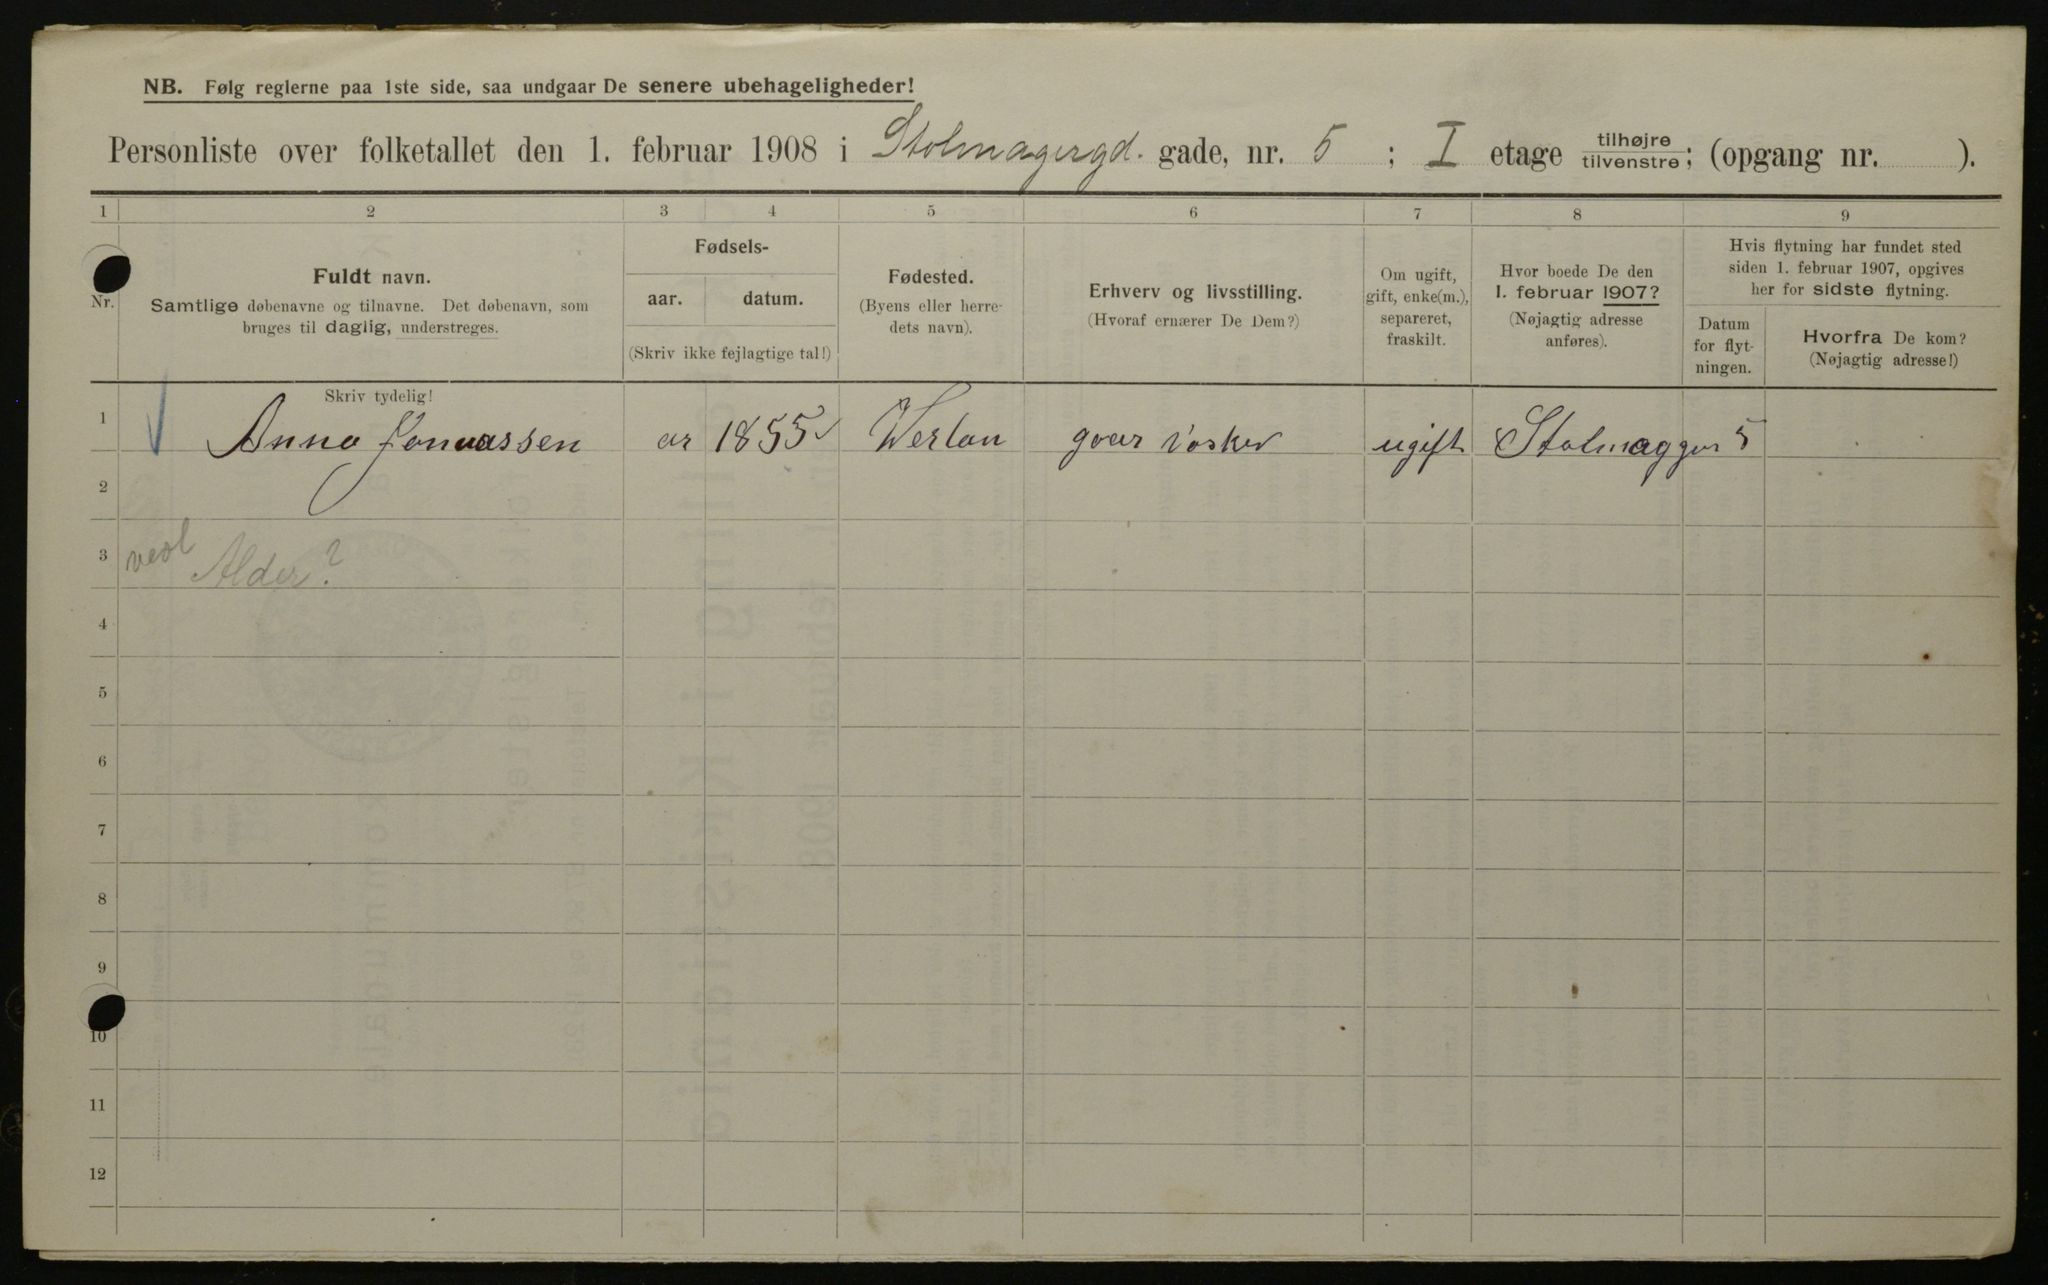 NB. Følg reglerne paa 1ste side, saa undgaar De senere ubehageligheder!
Personliste over folketallet den 1. februar 1908 i Stolmagergd. gade, nr. 5 ; I etage tilhøjre tilvenstre; (opgang nr. ).
1 2 3 4 5 6 7 8 9
Nr.
Fuldt navn.
Samtlige døbenavne og tilnavne. Det døbenavn, som
bruges til daglig, understreges.
Fødsels-
aar. datum.
(Skriv ikke fejlagtige tal!)
Fødested.
(Byens eller herre-
dets navn).
Erhverv og livsstilling.
(Hvoraf ernærer De Dem?)
Om ugift,
gift, enke(m.),
separeret,
fraskilt.
Hvor boede De den
1. februar 1907?
(Nøjagtig adresse
anføres).
Hvis flytning har fundet sted
siden 1. februar 1907, opgives
her for sidste flytning.
Datum
for flyt-
ningen.
Hvorfra De kom?
(Nøjagtig adresse!)
Skriv tydelig!
1 Anna Jonassen ar 1855 Werlan goar vasker ugift Stolmagger 5
2
3 Alder?
4
5
6
7
8
9
10
11
12